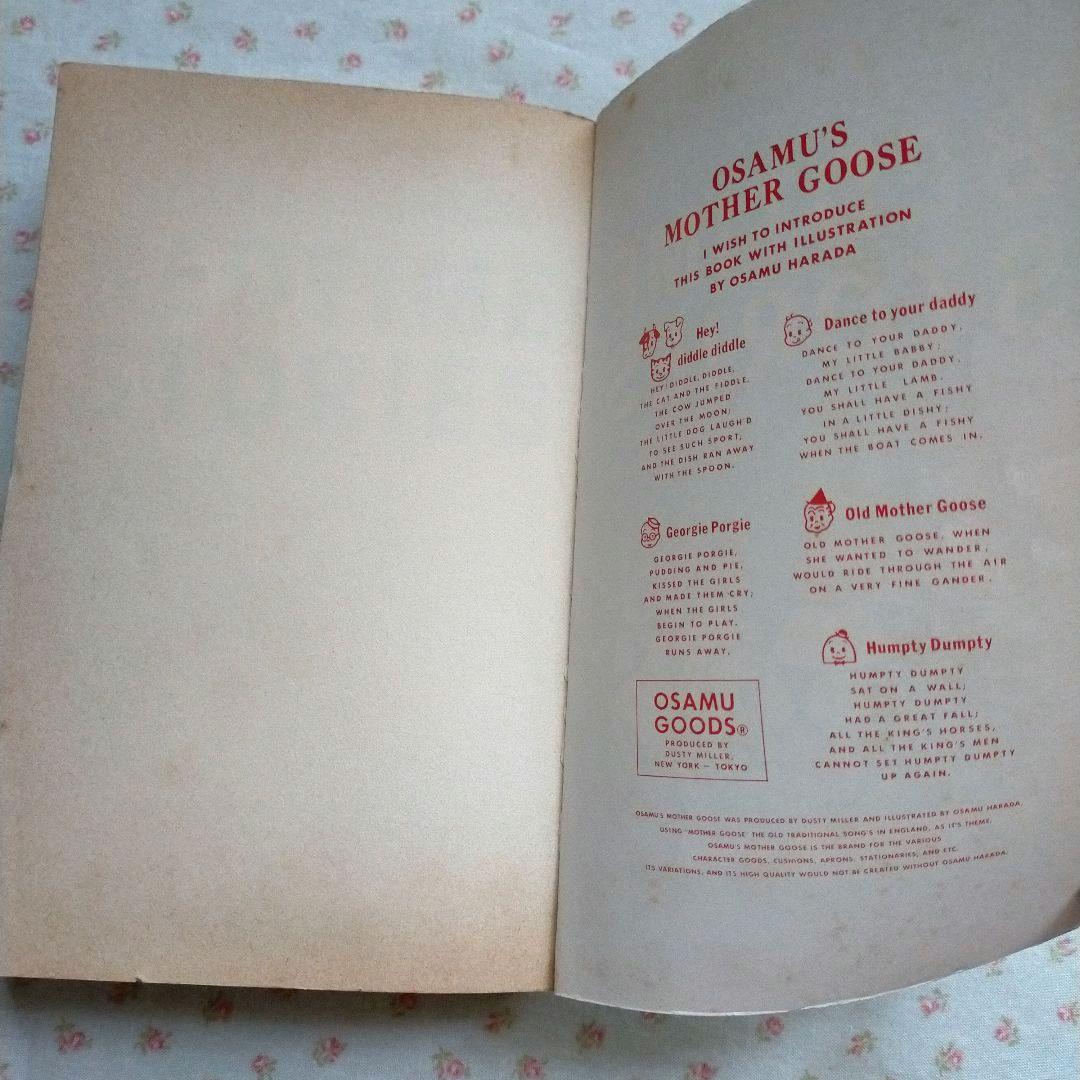 OSAMU'S
MOTHER GOOSE
I WISH TO INTRODUCE
THIS BOOK WITH ILLUSTRATION
BY OSAMU HARADA
Hey!
diddle diddle
HEY! DIDDLE, DIDDLE,
THE CAT AND THE FIDDLE,
THE COW JUMPED
OVER THE MOON;
THE LITTLE DOG LAUGH'D
TO SEE SUCH SPORT,
AND THE DISH RAN AWAY
WITH THE SPOON.
Georgie Porgie
GEORGIE PORGIE,
PUDDING AND PIE,
KISSED THE GIRLS
AND MADE THEM CRY;
WHEN THE GIRLS
BEGIN TO PLAY.
GEORGIE PORGIE
RUNS AWAY.
Dance to your daddy
DANCE TO YOUR DADDY,
MY LITTLE BABBY;
DANCE TO YOUR DADDY,
MY LITTLE LAMB.
YOU SHALL HAVE A FISHY
IN A LITTLE DISHY;
YOU SHALL HAVE A FISHY
WHEN THE BOAT COMES IN.
Old Mother Goose
OLD MOTHER GOOSE, WHEN
SHE WANTED TO WANDER,
WOULD RIDE THROUGH THE AIR
ON A VERY FINE GANDER.
Humpty Dumpty
HUMPTY DUMPTY
SAT ON A WALL;
HUMPTY DUMPTY
HAD A GREAT FALL;
ALL THE KING'S HORSES,
AND ALL THE KING'S MEN
CANNOT SET HUMPTY DUMPTY
UP AGAIN.
OSAMU
GOODS®
PRODUCED BY
DUSTY MILLER,
NEW YORK – TOKYO
OSAMU'S MOTHER GOOSE WAS PRODUCED BY DUSTY MILLER AND ILLUSTRATED BY OSAMU HARADA,
USING "MOTHER GOOSE" THE OLD TRADITIONAL SONG'S IN ENGLAND, AS IT'S THEME.
OSAMU'S MOTHER GOOSE IS THE BRAND FOR THE VARIOUS
CHARACTER GOODS, CUSHIONS, APRONS, STATIONARIES, AND ETC.
ITS VARIATIONS, AND ITS HIGH QUALITY WOULD NOT BE CREATED WITHOUT OSAMU HARADA.